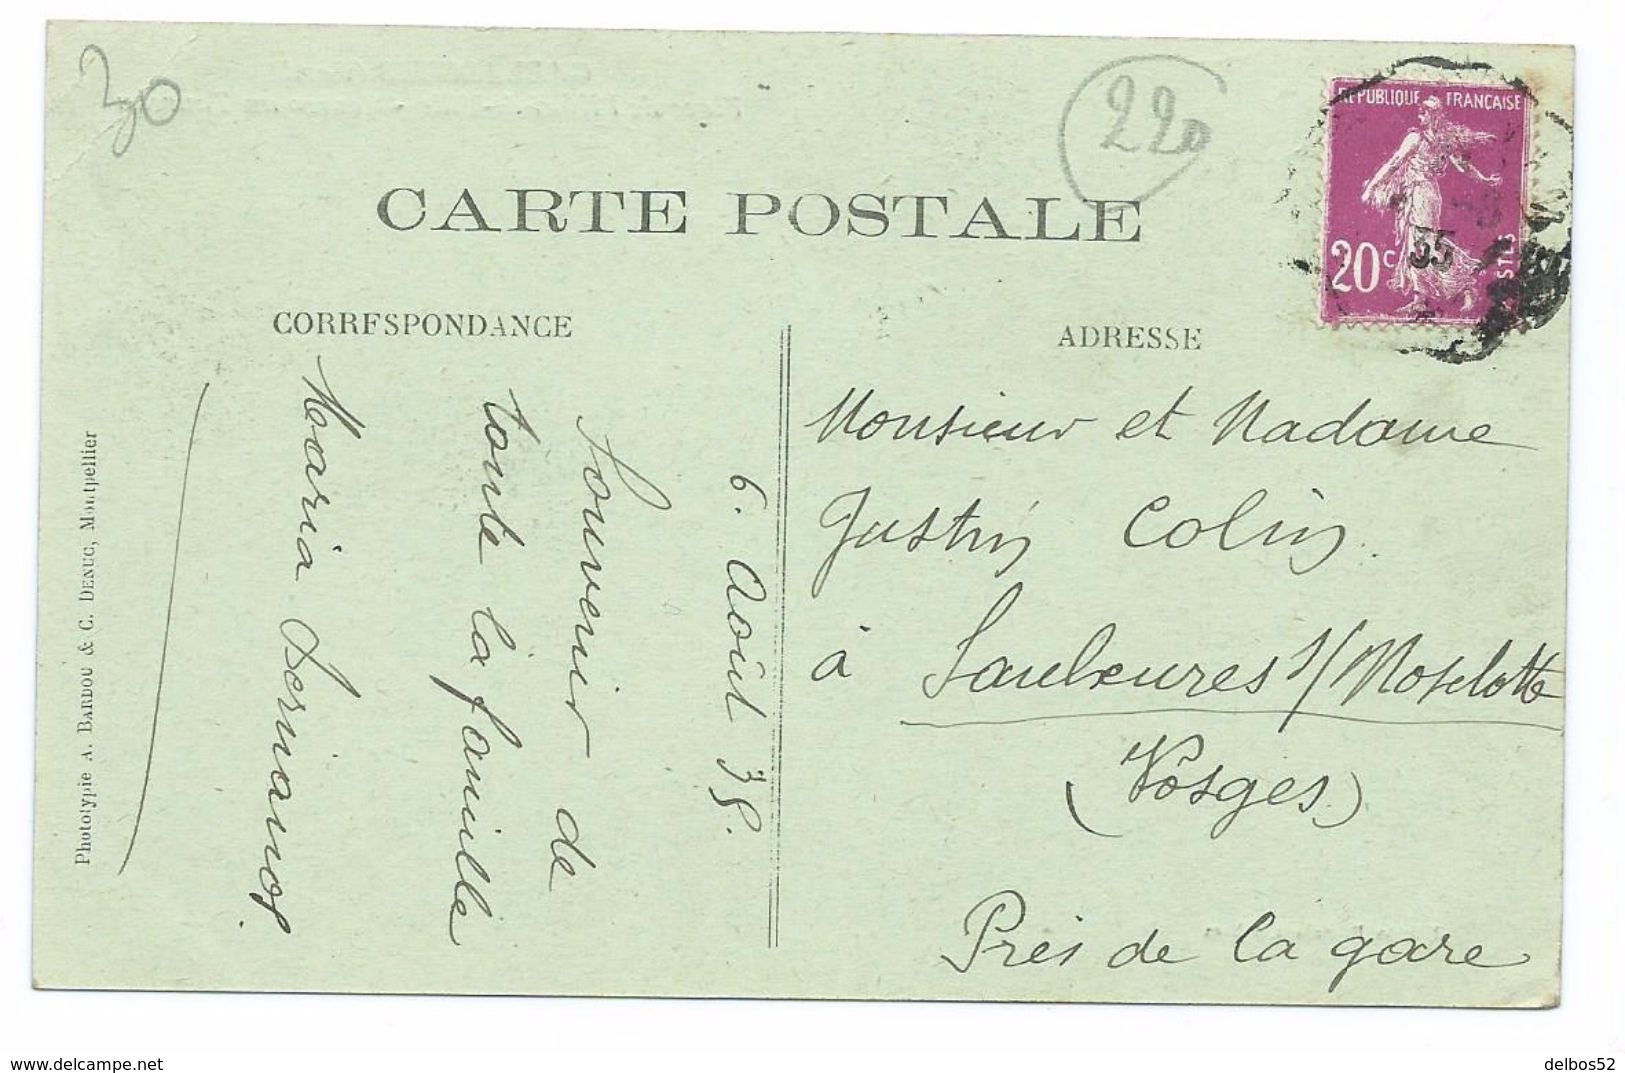 30
220
REPUBLIQUE FRANÇAISE
20c
35
CARTE POSTALE
CORRESPONDANCE
ADRESSE
6. Août 35.
Souvenir de
toute la famille
Maria
Monsieur et Madame
Justin Colin
à Saulxures s/Moselotte
(Vosges)
Près de la gare
Phototypie A. BARDOU & C. DENUC, Montpellier
www.delcampe.net
delbos52